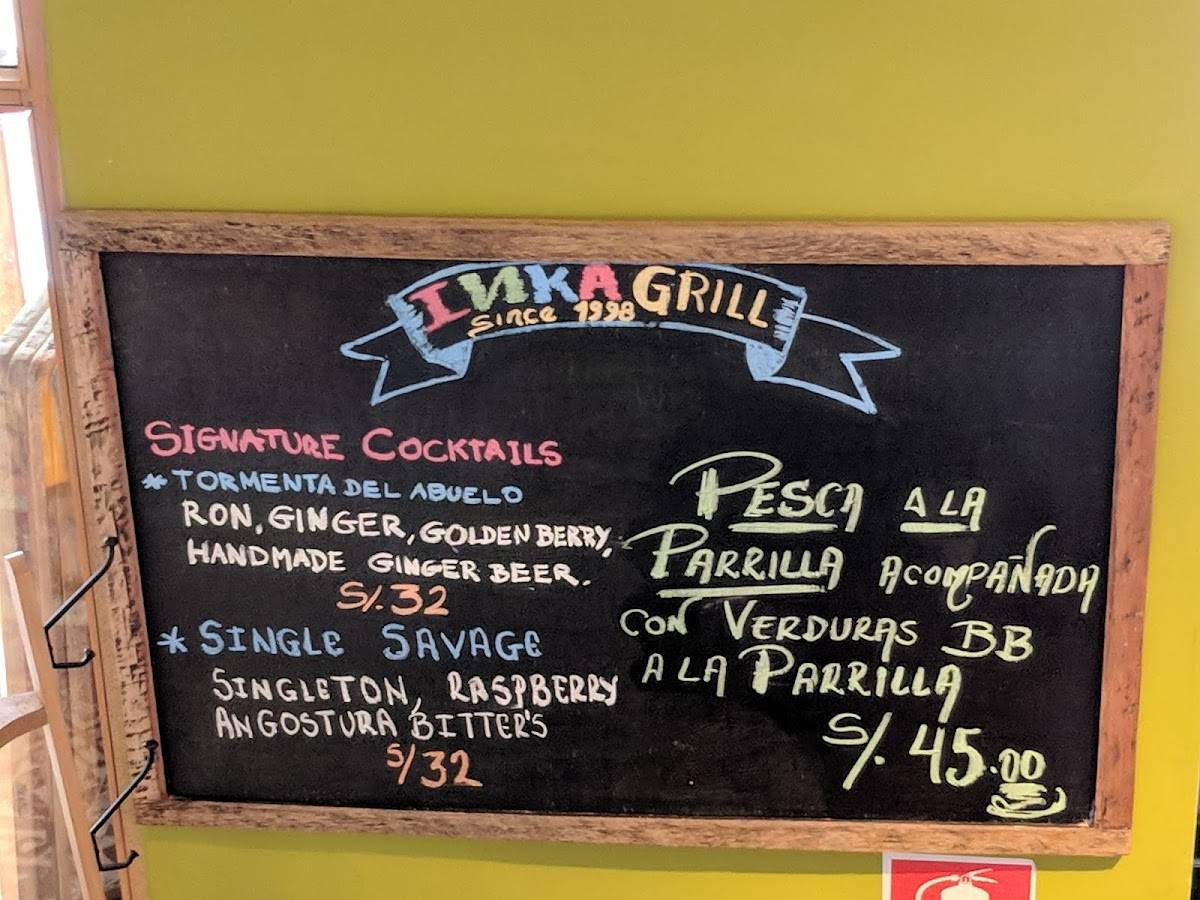 INKA GRILL
Since 1998
SIGNATURE COCKTAILS
* TORMENTA DEL ABUELO
RON, GINGER, GOLDEN BERRY,
HANDMADE GINGER BEER.
S/. 32
* SINGLE SAVAGE
SINGLETON, RASPBERRY
ANGOSTURA BITTER'S
S/32
PESCA A LA
PARRILLA ACOMPAÑADA
CON VERDURAS BB
A LA PARRILLA
S/. 45.00